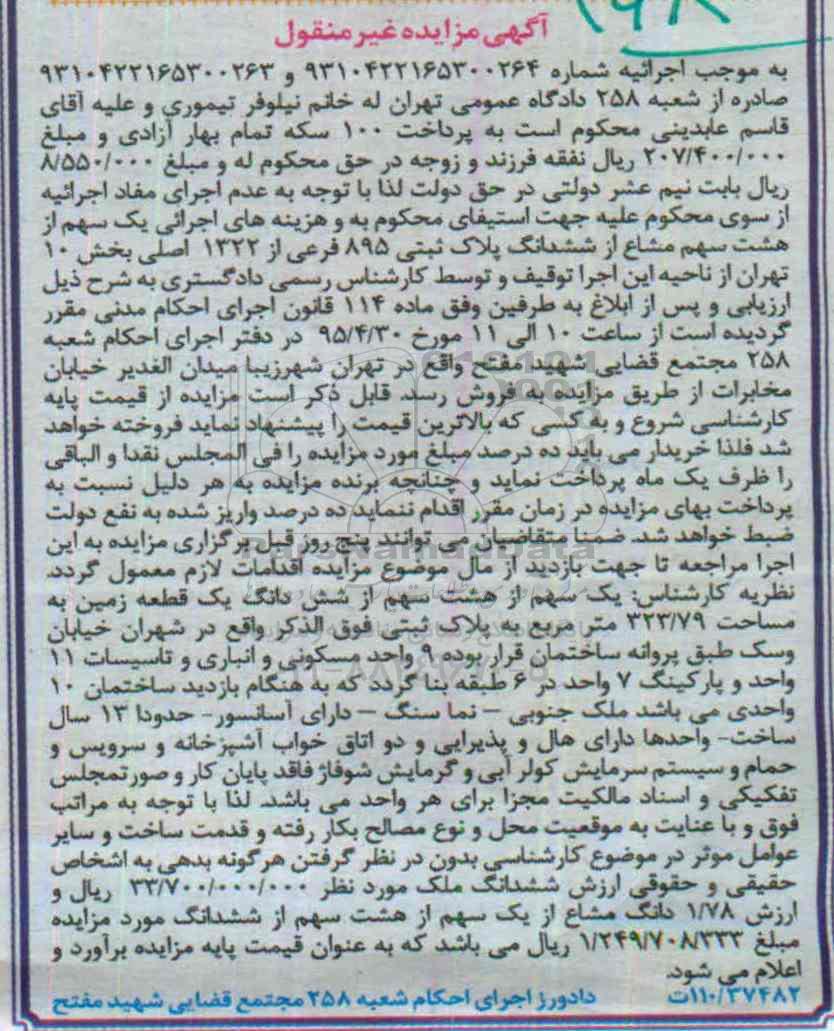 آگهی مزایده غیر منقول
به موجب اجرائیه شماره ۹۳۱۰۴۲۲۱۶۵۳۰۰۲۶۴ و ۹۳۱۰۴۲۲۱۶۵۳۰۰۲۶۳
صادره از شعبه ۲۵۸ دادگاه عمومی تهران له خانم نیلوفر تیموری و علیه آقای
قاسم عابدینی محکوم است به پرداخت ۱۰۰ سکه تمام بهار آزادی و مبلغ
۲۰۷/۴۰۰/۰۰۰ ریال نفقه فرزند و زوجه در حق محکوم له و مبلغ ۸/۵۵۰/۰۰۰
ریال بابت نیم عشر دولتی در حق دولت لذا با توجه به عدم اجرای مفاد اجرائیه
از سوی محکوم علیه جهت استیفای محکوم به و هزینه های اجرائی یک سهم از
هشت سهم مشاع از ششدانگ پلاک ثبتی ۸۹۵ فرعی از ۱۳۲۲ اصلی بخش ۱۰
تهران از ناحیه این اجرا توقیف و توسط کارشناس رسمی دادگستری به شرح ذیل
ارزیابی و پس از ابلاغ به طرفین وفق ماده ۱۱۴ قانون اجرای احکام مدنی مقرر
گردیده است از ساعت ۱۰ الی ۱۱ مورخ ۹۵/۴/۳۰ در دفتر اجرای احکام شعبه
۲۵۸ مجتمع قضایی شهید مفتح واقع در تهران شهرزیبا میدان الغدیر خیابان
مخابرات از طریق مزایده به فروش رسد. قابل ذکر است مزایده از قیمت پایه
کارشناسی شروع و به کسی که بالاترین قیمت را پیشنهاد نماید فروخته خواهد
شد فلذا خریدار می باید ده درصد مبلغ مورد مزایده را فی المجلس نقدا و الباقی
را ظرف یک ماه پرداخت نماید و چنانچه برنده مزایده به هر دلیل نسبت به
پرداخت بهای مزایده در زمان مقرر اقدام ننماید ده درصد واریز شده به نفع دولت
ضبط خواهد شد. ضمنا متقاضیان می توانند پنج روز قبل برگزاری مزایده به این
اجرا مراجعه تا جهت بازدید از مال موضوع مزایده اقدامات لازم معمول گردد.
نظریه کارشناس: یک سهم از هشت سهم از شش دانگ یک قطعه زمین به
مساحت ۳۲۳/۷۹ متر مربع به پلاک ثبتی فوق الذکر واقع در شهران خیابان
وسک طبق پروانه ساختمان قرار بوده ۹ واحد مسکونی و انباری و تاسیسات ۱۱
واحد و پارکینگ ۷ واحد در ۶ طبقه بنا گردد که به هنگام بازدید ساختمان ۱۰
واحدی می باشد ملک جنوبی – نما سنگ – دارای آسانسور- حدودا ۱۳ سال
ساخت- واحدها دارای هال و پذیرایی و دو اتاق خواب آشپزخانه و سرویس و
حمام و سیستم سرمایش کولر آبی و گرمایش شوفاژ فاقد پایان کار و صورتمجلس
تفکیکی و اسناد مالکیت مجزا برای هر واحد می باشد. لذا با توجه به مراتب
فوق و با عنایت به موقعیت محل و نوع مصالح بکار رفته و قدمت ساخت و سایر
عوامل موثر در موضوع کارشناسی بدون در نظر گرفتن هرگونه بدهی به اشخاص
حقیقی و حقوقی ارزش ششدانگ ملک مورد نظر ۳۳/۷۰۰/۰۰۰/۰۰۰ ریال و
ارزش ۱/۷۸ دانگ مشاع از یک سهم از هشت سهم از ششدانگ مورد مزایده
مبلغ ۱/۲۴۹/۷۰۸/۳۳۳ ریال می باشد که به عنوان قیمت پایه مزایده برآورد و
اعلام می شود.
۱۱۰/۳۷۴۸۲ت دادورز اجرای احکام شعبه ۲۵۸ مجتمع قضایی شهید مفتح
ParsNamadData